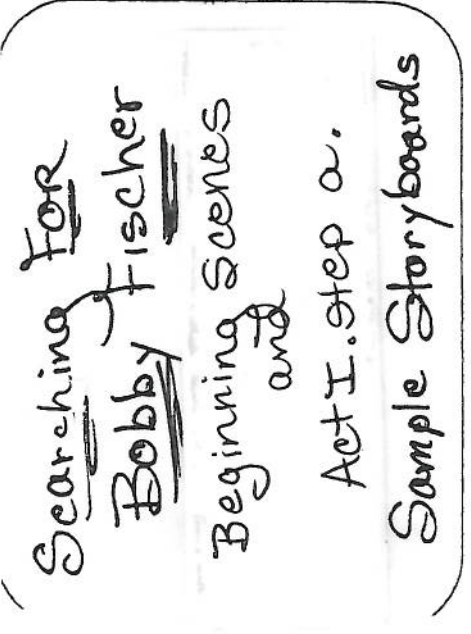 Searching For
Bobby Fischer
Beginning Scenes
and
Act I. Step a.
Sample Storyboards